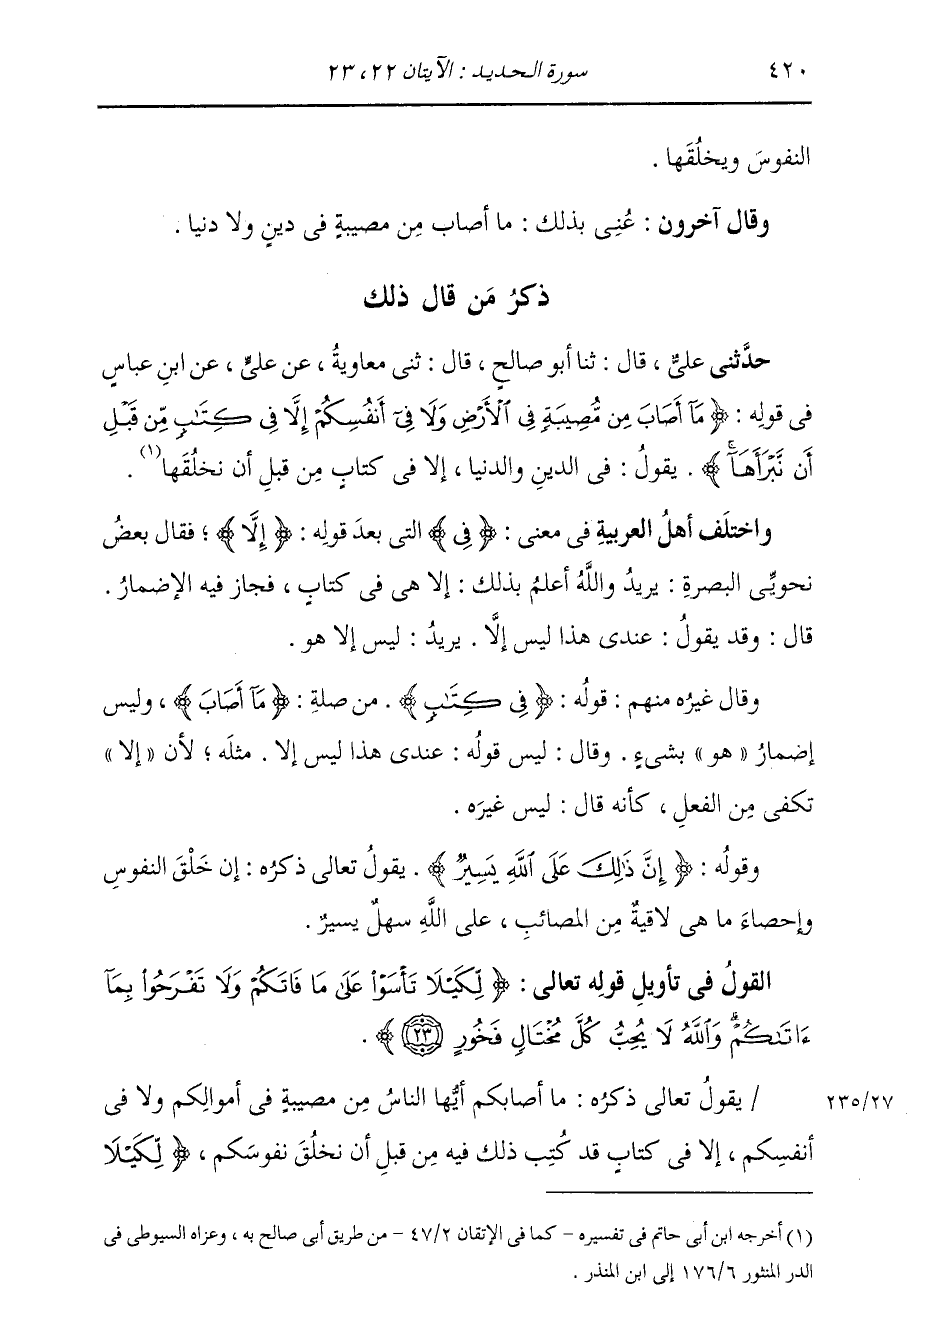 ٤٢٠ سورة الحديد : الآيتان ٢٢ ، ٢٣
النفوسَ ويخلُقَها .
وقال آخرون : عُنِى بذلك : ما أصاب مِن مصيبةٍ فى دينٍ ولا دنيا .
ذكرُ مَن قال ذلك
حدَّثنى علىٌّ ، قال : ثنا أبو صالحٍ ، قال : ثنى معاويةُ ، عن علىٍّ ، عن ابنِ عباسٍ
فى قولِه : ﴿ مَآ أَصَابَ مِن مُّصِيبَةٍ فِى ٱلْأَرْضِ وَلَا فِىٓ أَنفُسِكُمْ إِلَّا فِى كِتَـٰبٍ مِّن قَبْلِ
أَن نَّبْرَأَهَآ ۚ ﴾ . يقولُ : فى الدينِ والدنيا ، إلا فى كتابٍ مِن قبلِ أن نخلُقَها (١) .
واختلَف أهلُ العربيةِ فى معنى : ﴿ فِى ﴾ التى بعدَ قولِه : ﴿ إِلَّا ﴾ ؛ فقال بعضُ
نحويِّى البصرةِ : يريدُ واللَّهُ أعلمُ بذلك : إلا هى فى كتابٍ ، فجاز فيه الإضمارُ .
قال : وقد يقولُ : عندى هذا ليس إلَّا . يريدُ : ليس إلا هو .
وقال غيرُه منهم : قولُه : ﴿ فِى كِتَـٰبٍ ﴾ . من صلةِ : ﴿ مَآ أَصَابَ ﴾ ، وليس
إضمارُ « هو » بشىءٍ . وقال : ليس قولُه : عندى هذا ليس إلا . مثلَه ؛ لأن « إلا »
تكفى مِن الفعلِ ، كأنه قال : ليس غيرَه .
وقولُه : ﴿ إِنَّ ذَٰلِكَ عَلَى ٱللَّهِ يَسِيرٌ ﴾ . يقولُ تعالى ذكرُه : إن خَلْقَ النفوسِ
وإحصاءَ ما هى لاقيةٌ مِن المصائبِ ، على اللَّهِ سهلٌ يسيرٌ .
القولُ فى تأويلِ قولِه تعالى : ﴿ لِّكَيْلَا تَأْسَوْا۟ عَلَىٰ مَا فَاتَكُمْ وَلَا تَفْرَحُوا۟ بِمَآ
ءَاتَىٰكُمْ ۗ وَٱللَّهُ لَا يُحِبُّ كُلَّ مُخْتَالٍ فَخُورٍ ٢٣ ﴾ .
٢٣٥/٢٧ / يقولُ تعالى ذكرُه : ما أصابكم أيُّها الناسُ مِن مصيبةٍ فى أموالِكم ولا فى
أنفسِكم ، إلا فى كتابٍ قد كُتِب ذلك فيه مِن قبلِ أن نخلُقَ نفوسَكم ، ﴿ لِّكَيْلَا
(١) أخرجه ابن أبى حاتم فى تفسيره – كما فى الإتقان ٤٧/٢ – من طريق أبى صالح به ، وعزاه السيوطى فى
الدر المنثور ١٧٦/٦ إلى ابن المنذر .